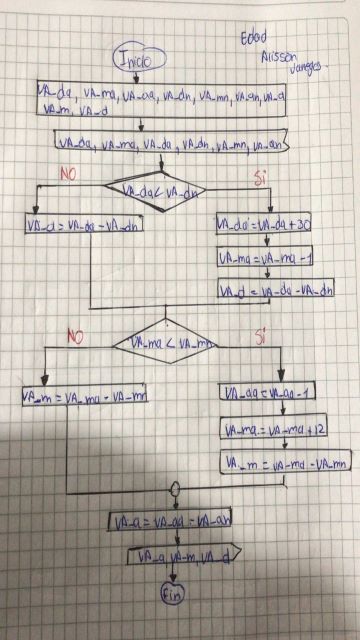 Edad
Alisson
Inicio
VA_da, VA_ma, VA_aa, VA_dn, VA_mn, VA_an, VA_a
VA_m, VA_d
VA_da, VA_ma, VA_da, VA_dn, VA_mn, VA_an
NO
Si
VA_da < VA_dn
VA_d = VA_da - VA_dn
VA_da = VA_da + 30
VA_ma = VA_ma - 1
VA_d = VA_da - VA_dn
NO
Si
VA_ma < VA_mn
VA_m = VA_ma - VA_mn
VA_aa = VA_aa - 1
VA_ma = VA_ma + 12
VA_m = VA_ma - VA_mn
VA_a = VA_aa - VA_an
VA_a, VA_m, VA_d
Fin